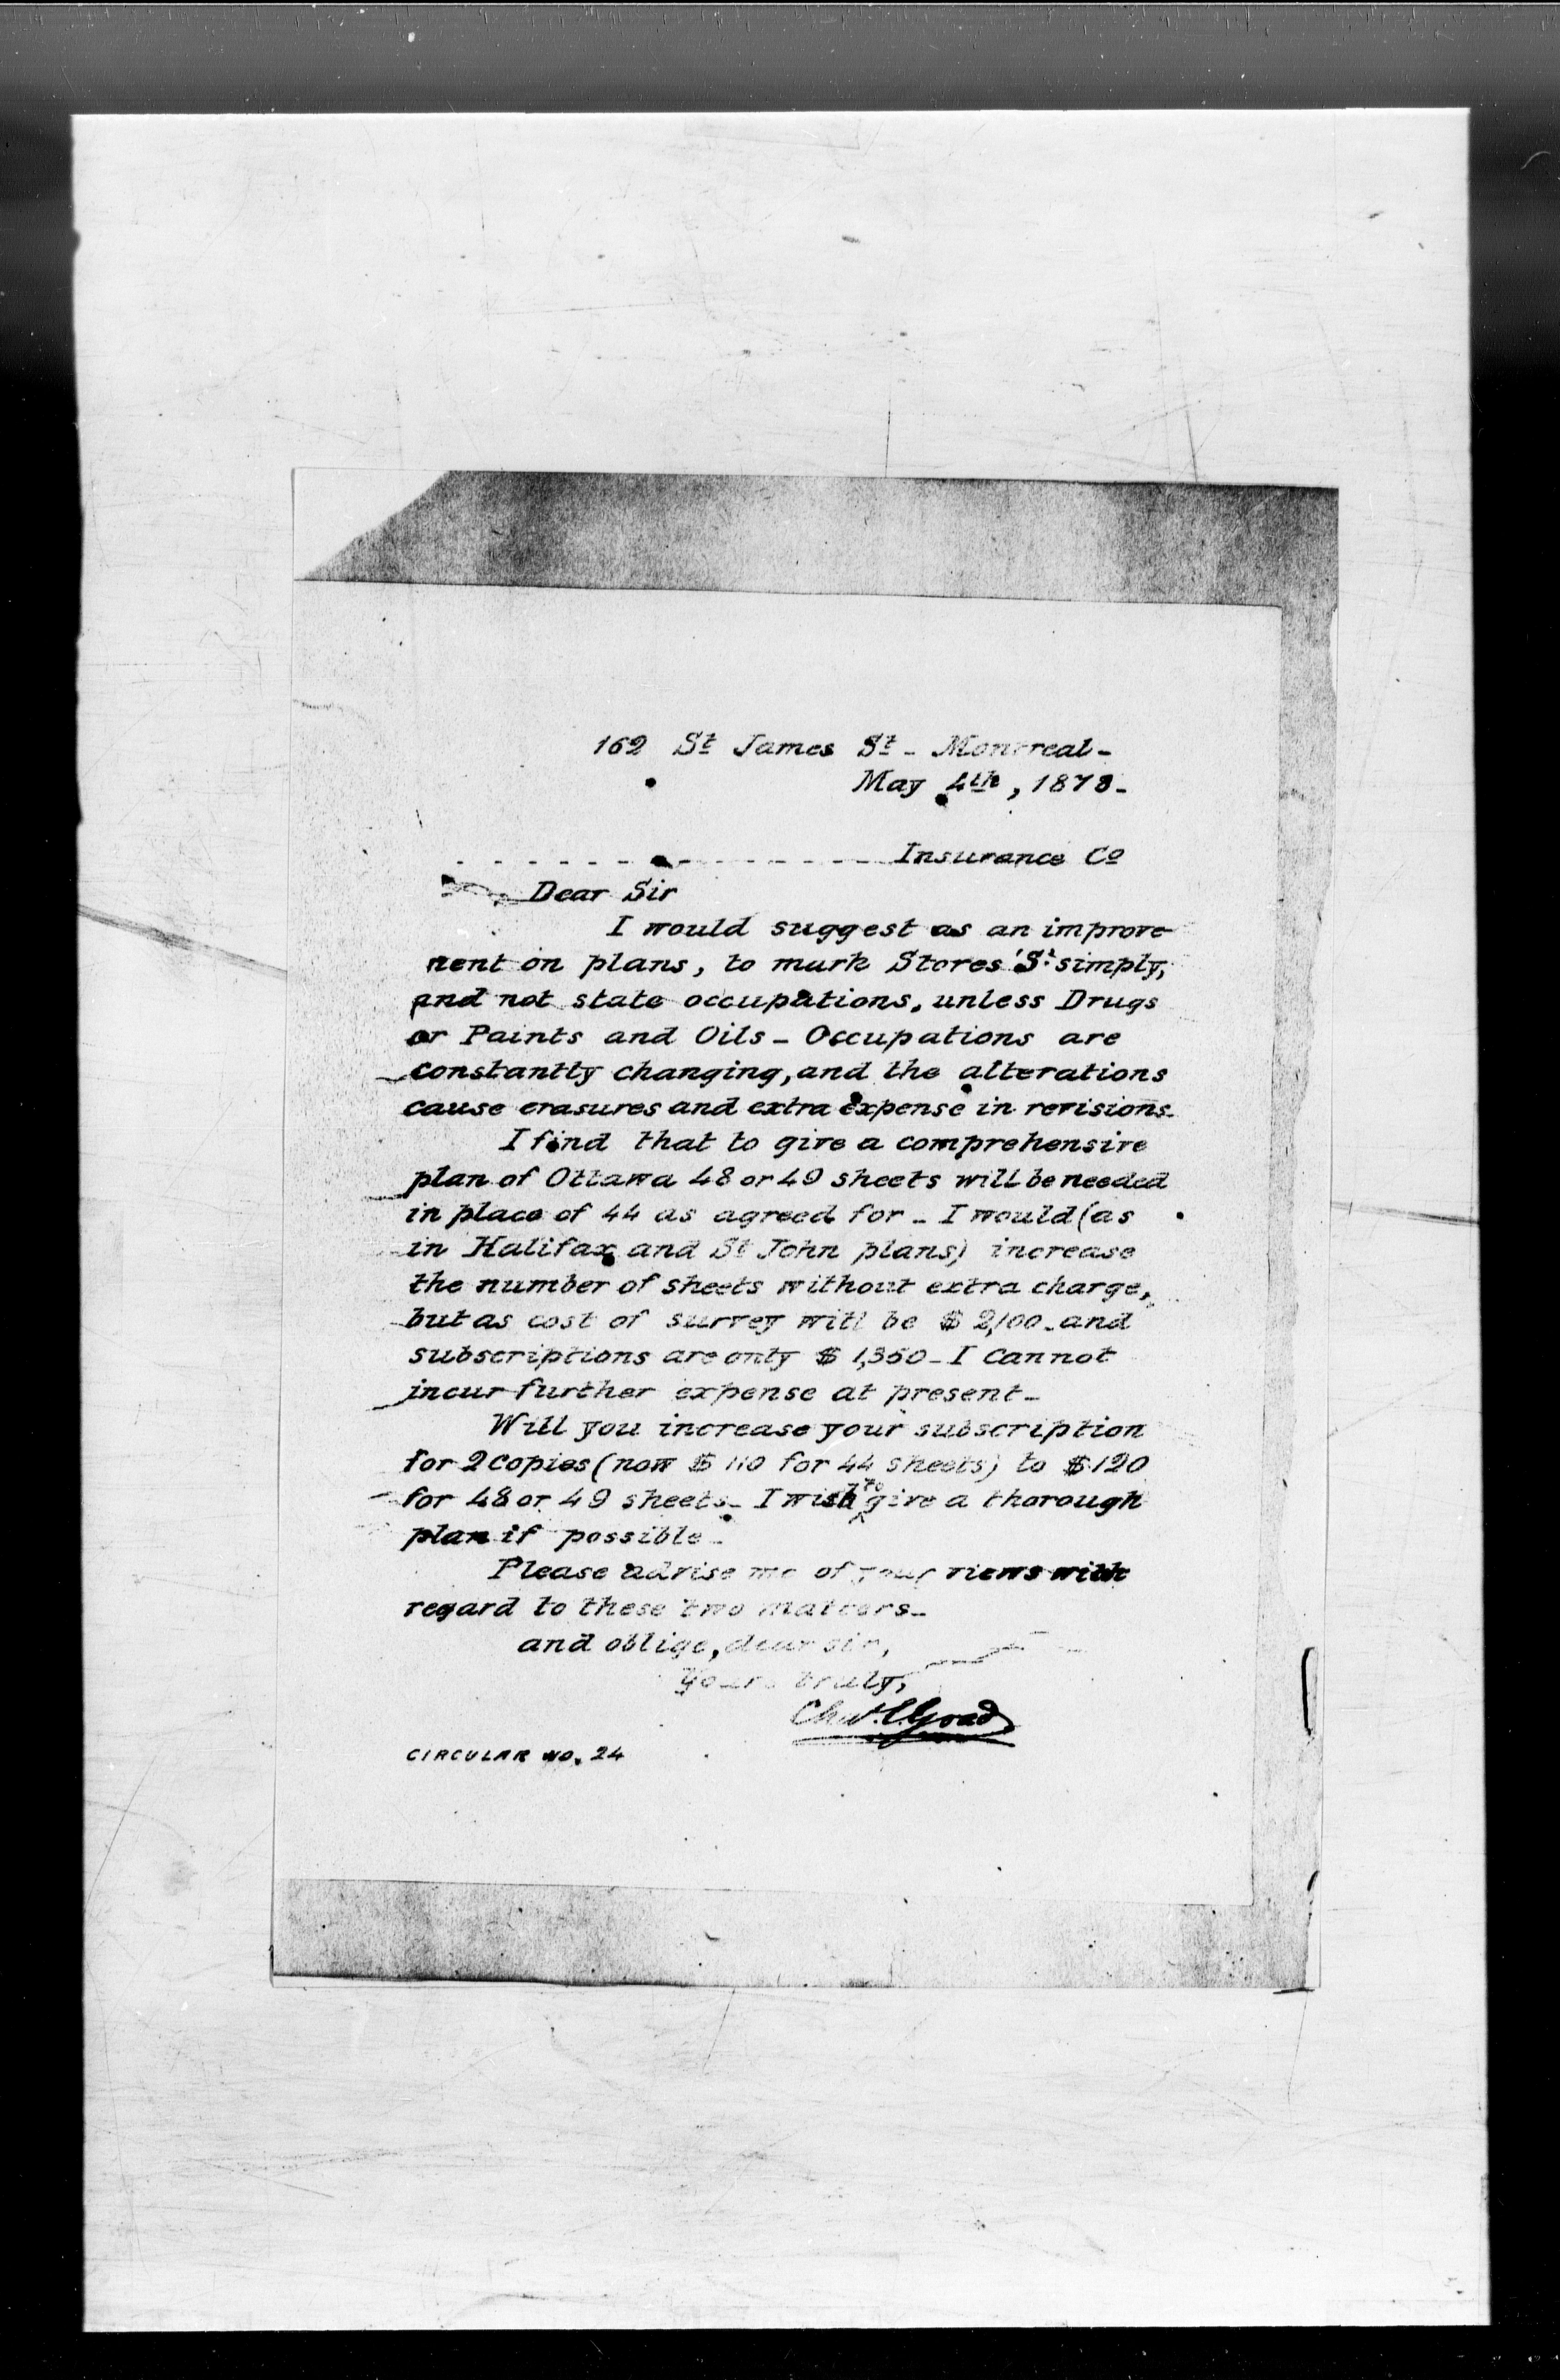 162 St James St - Montreal -
May 4th, 1878 -
Insurance Co
Dear Sir
I would suggest as an improve-
ment on plans, to mark Stores 'S.' simply,
and not state occupations, unless Drugs
or Paints and Oils - Occupations are
constantly changing, and the alterations
cause erasures and extra expense in revisions.
I find that to give a comprehensive
plan of Ottawa 48 or 49 sheets will be needed
in place of 44 as agreed for - I would (as
in Halifax and St John plans) increase
the number of sheets without extra charge,
but as cost of survey will be $ 2,100 - and
subscriptions are only $ 1,350 - I cannot
incur further expense at present -
Will you increase your subscription
for 2 copies (now $ 110 for 44 sheets) to $ 120
for 48 or 49 sheets - I wish to give a thorough
plan if possible -
Please advise me of your views with
regard to these two matters -
and oblige, dear sir,
Yours truly,
Chas. E. Goad
CIRCULAR NO. 24